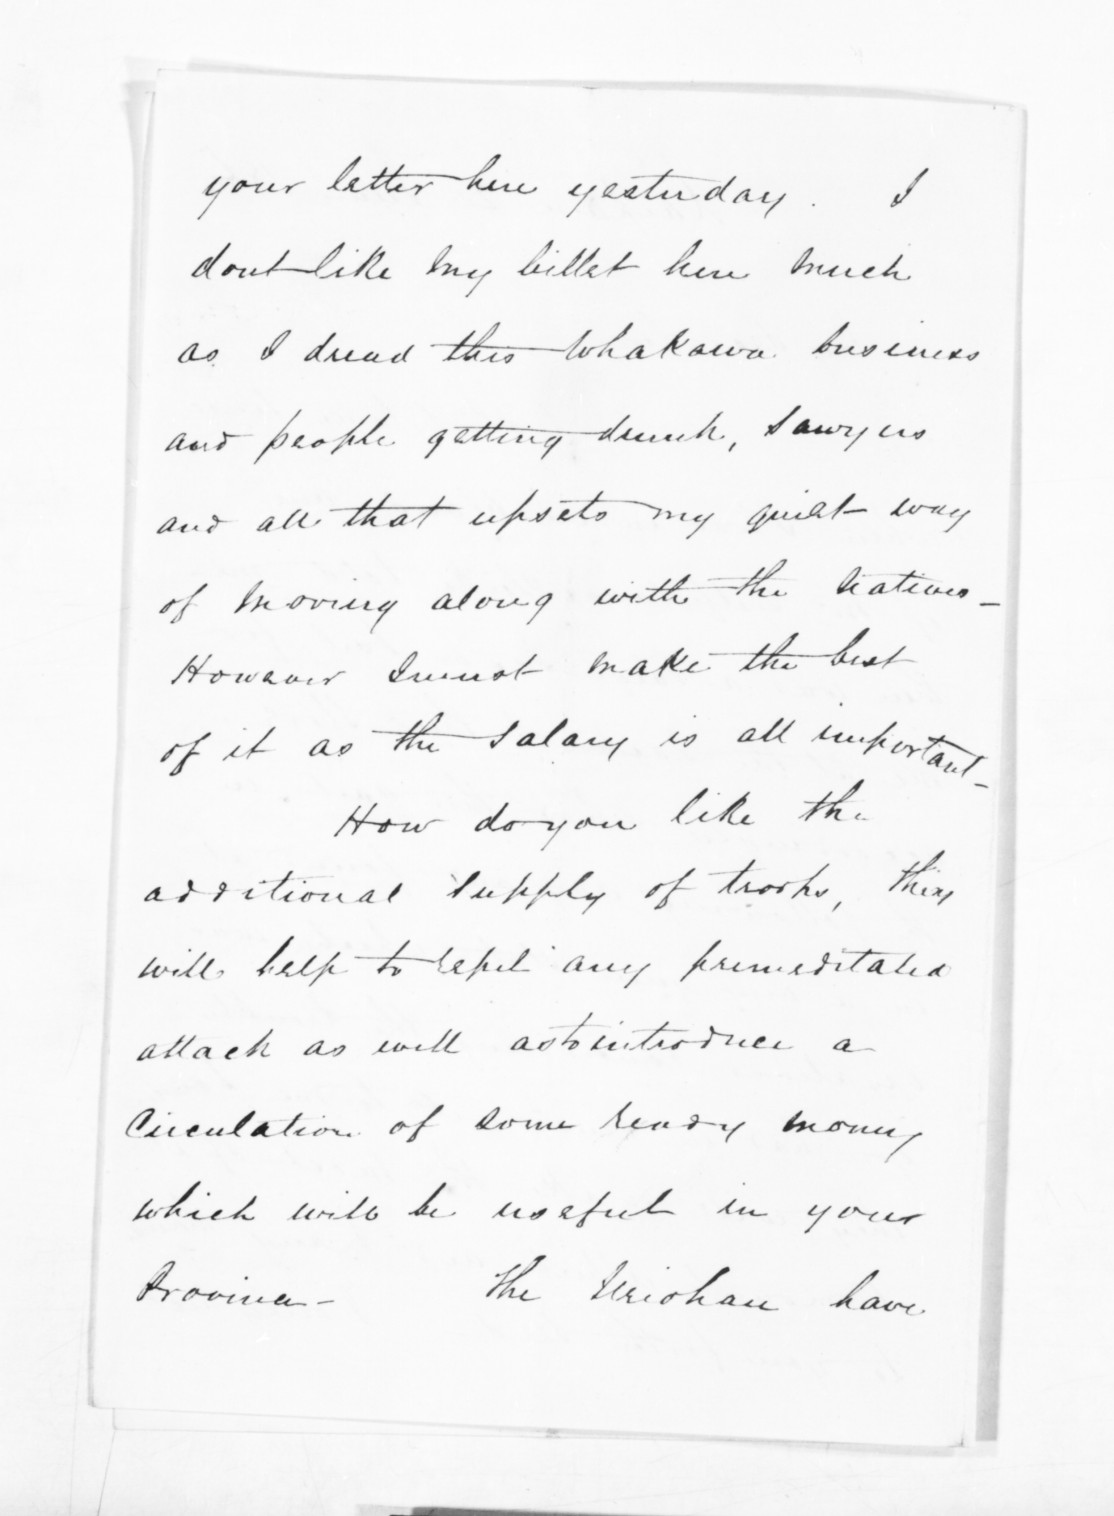 your letter here yesterday. I
dont like my billet here much
as I dread this Whakawa business
and people getting drunk, Sawyers
and all that upsets my quiet way
of moving along with the Natives -
However I must make the best
of it as the salary is all important -
How do you like the
additional supply of troops, they
will help to repel any premeditated
attack as well as to introduce a
Circulation of some ready money
which will be useful in your
Province - The Uriohau have